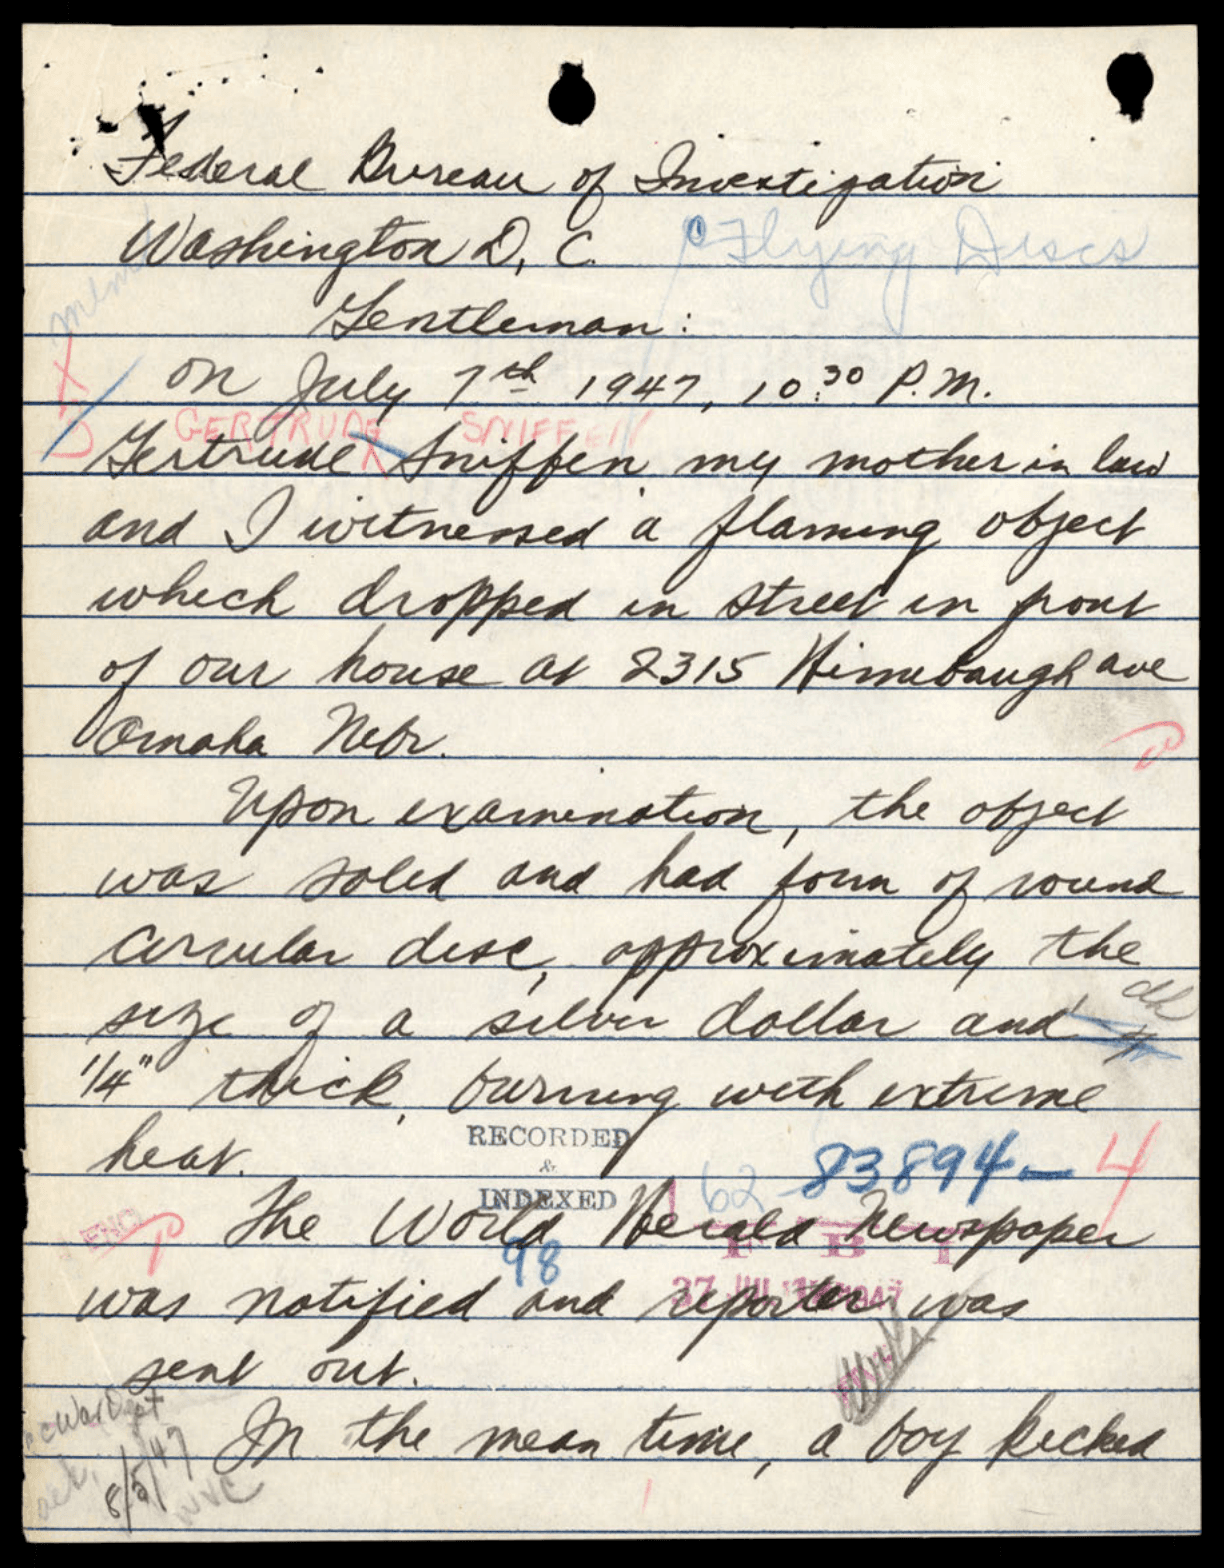 Federal Bureau of Investigation
Washington D. C. Flying Discs
Gentleman:
On July 7th 1947, 10:30 P.M.
GERTRUDE SNIFFEN
Gertrude Sniffen my mother in law
and I witnessed a flaming object
which dropped in street in front
of our house at 2315 Himebaugh ave
Omaha Nebr.
Upon examination, the object
was solid and had form of round
circular disc, approximately the
size of a silver dollar and
1/4" thick, burning with extreme
heat.
RECORDED
&
INDEXED
98
62-83894-4
F B I
The World Herald Newspaper
was notified and reporter was
sent out.
In the mean time, a boy kicked
cc War Dept
8/5/47